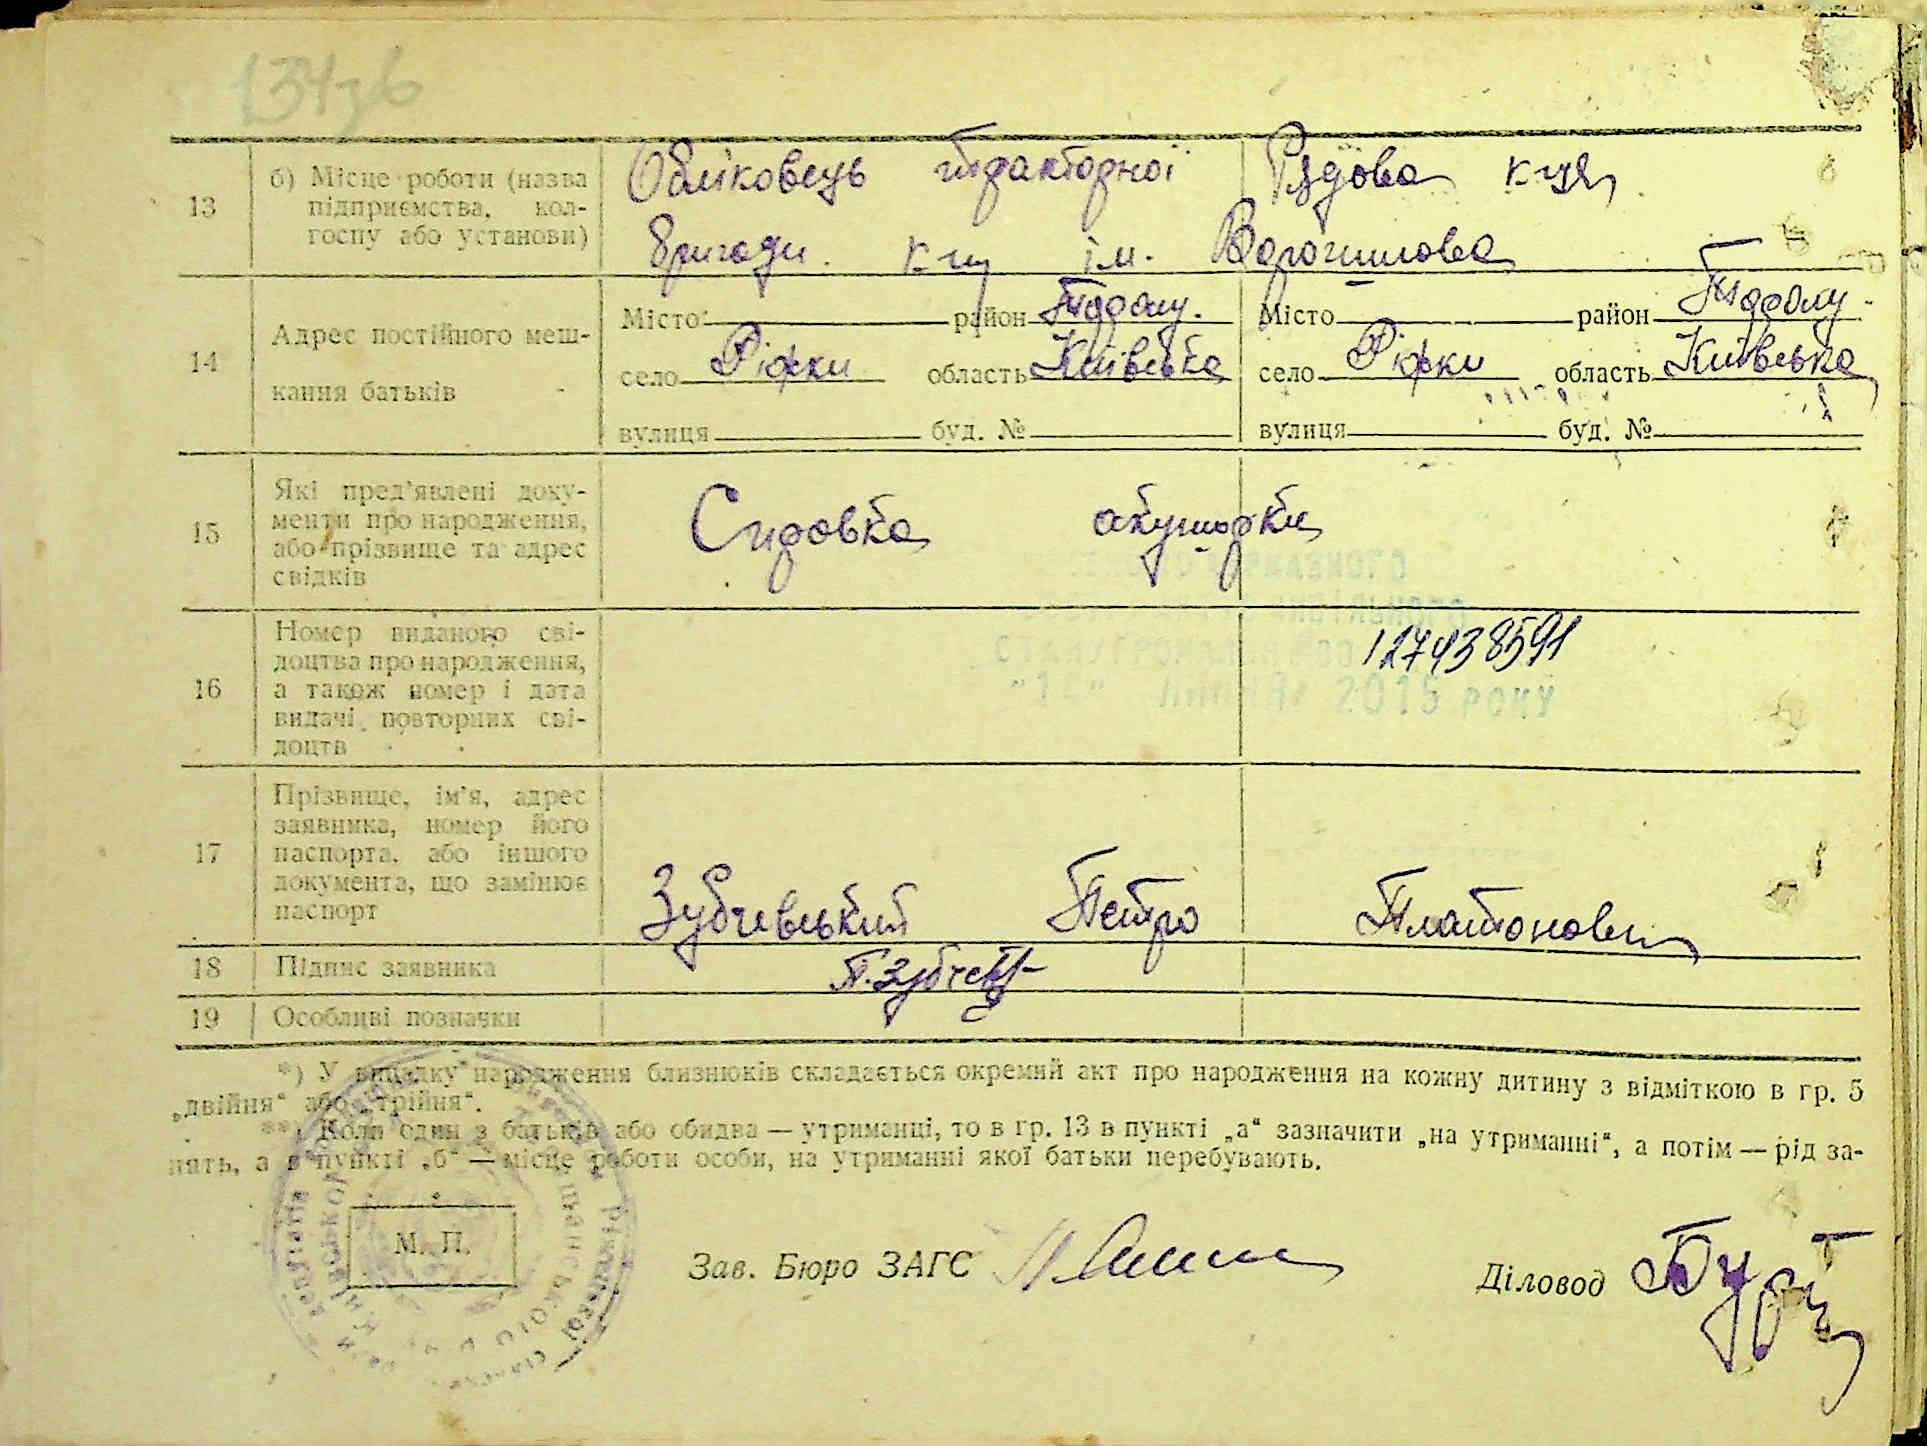 134зв
13
б) Місце роботи (назва підприємства, колгоспу або установи)
Обліковець тракторної Рядова к-ця
бригади. к-гу ім. Ворошилова
14
Адрес постійного мешкання батьків
Місто район Місто район
село Ріжки область Київська село Ріжки область Київська
вулиця буд. № вулиця буд. №
15
Які пред'явлені документи про народження, або прізвище та адрес свідків
акушорки
16
Номер виданого свідоцтва про народження, а також номер і дата видачі повторних свідоцтв
127438591
"14" ЛИПНЯ 2015 РОКУ
17
Прізвище, ім'я, адрес заявника, номер його паспорта, або іншого документа, що замінює паспорт
Зубчевський Петро Платонович
18
Підпис заявника
П. Зубчев
19
Особливі позначки
*) У випадку народження близнюків складається окремий акт про народження на кожну дитину з відміткою в гр. 5
„двійня“ або „трійня“.
**) Коли один з батьків або обидва — утриманці, то в гр. 13 в пункті „а“ зазначити „на утриманні“, а потім — рід за-
нять, а в пункті „б“ — місце роботи особи, на утриманні якої батьки перебувають.
М. П.
Зав. Бюро ЗАГС
Діловод